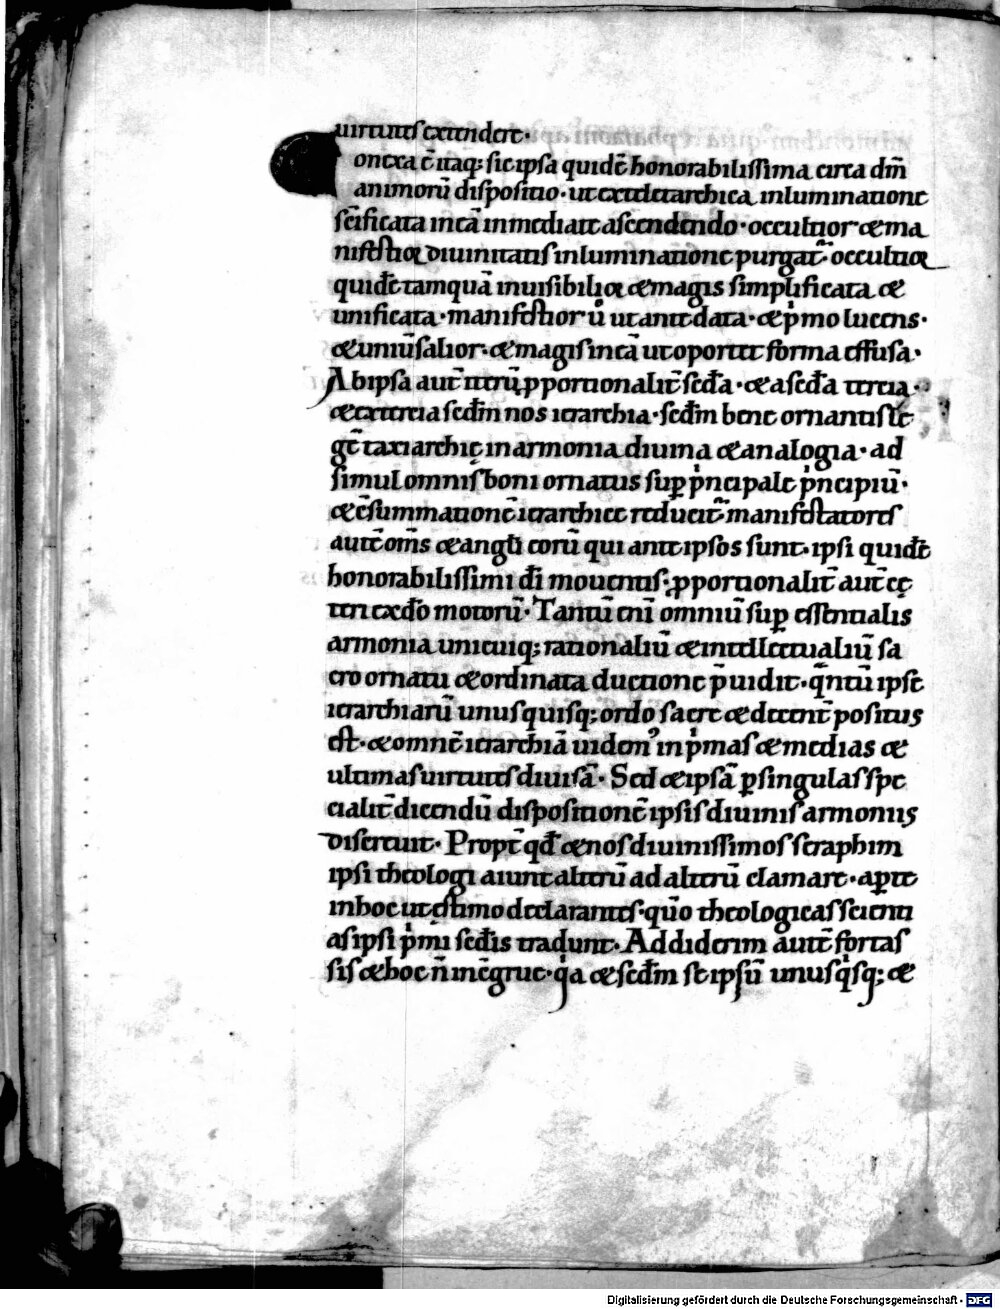 uirtutes extendere·
onexa ē itaq; sic ipsa quidē honorabilissima circa dm̄
animorū dispositio· ut ex teletarchica inluminatione
scīficata in eā inmediate ascendendo· occultior & ma
nifestior diuinitatis inluminatione purgat̄· occultior
quidē tamquā inuisibilior & magis simplificata &
unificata· manifestior ū ut ante data· & pͥmo lucens·
& uniūsalior· & magis in eā ut oportet forma effusa·
Ab ipsa aut̄ iterū ꝓportionalit̄ secd̄a· & a secd̄a tercia·
& ex tercia secd̄m nos ierarchia· secd̄m bene ornantis le
gē taxiarchię in armonia diuina & analogia· ad
simul omnis boni ornatus suꝑ pͥncipale pͥncipiū·
& cēsummationē ierarchice reducit̄ manifestatores
autē om̄s & angl̄i eorū qui ante ipsos sunt· ipsi quidē
honorabilissimi dī mouentis· ꝓportionalit̄ autē cę
teri ex dō motorū· Tantū enī omniū suꝑ essentialis
armonia unicuiq; rationaliū & intellectualiū sa
cro ornatu & ordinata ductione p̄uidit· qͣntū ipse
ierarchiarū unusquisq; ordo sacre & decent̄ positus
est· & omnē ierarchiā uidem᾽ in pͥmas & medias &
ultimas uirtutes diuisā· Sed & ipsā ꝑ singulas spe
cialit̄ dicendū dispositionē ipsis diuinis armoniis
discreuit· Propt̄ qd̄ & nos diuinissimos seraphim
ipsi theologi aiunt alterū ad alterū clamare· aꝑte
in hoc ut estimo declarantes· quō theologicas scienti
as ipsi pͥmi secd̄is tradunt· Addiderim autē fortas
sis & hoc n̄ incēgrue· qͥa & secd̄m se ipsū unusqͥsq; &
Digitalisierung gefördert durch die Deutsche Forschungsgemeinschaft - DFG